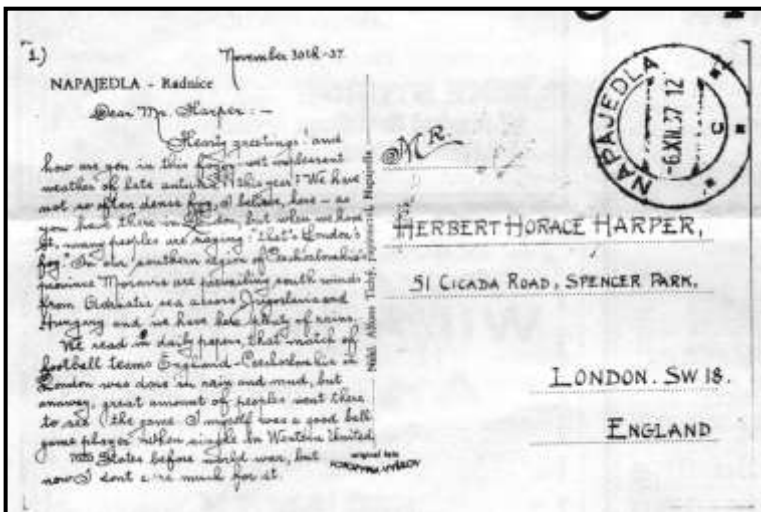 1)
November 30th-37.
NAPAJEDLA - Radnice
Dear Mr. Harper:-
Hearty greetings! and
how are you in this wet unpleasent
weather of late autumn this year? We have
not so often dense fog, I believe, here - as
you have there in London, but when we have
it, many peoples are saying: "that's London's
fog." In our southern region of Czechoslovakia's
province Moravia are prevailing south winds
from Adriatic sea across Jugoslavia and
Hungary and we have here plenty of rains.
We read in daily papers, that match of
football teams England-Czechoslovakia in
London was done in rain and mud, but
anyway, great amount of peoples went there
to see the game. I myself was a good ball
game player when single in Western United
States before world war, but
now I dont care much for it.
Nákl. Alfons Tichý, Napajedla
MR.
HERBERT HORACE HARPER,
51 CICADA ROAD, SPENCER PARK.
LONDON. SW 18.
ENGLAND
NAPAJEDLA
-6.XII.37 12
C